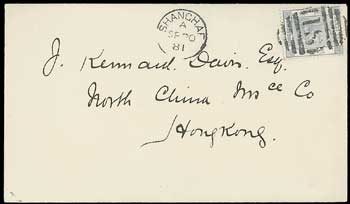 SHANGHAI
A
SP 20
81
S1
J. Kennard Davis Esq.
North China Insce Co
Hongkong.